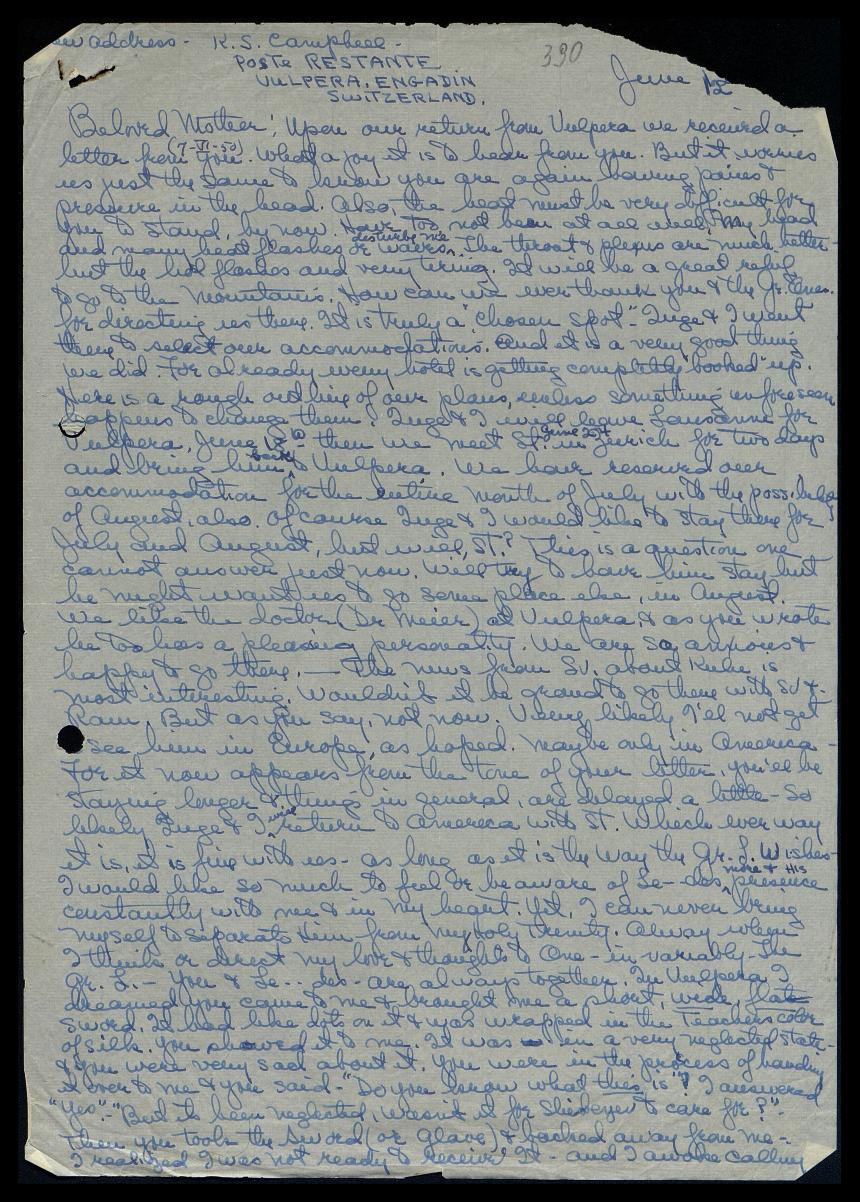 New address - K.S. Campbell -
390
POSTE RESTANTE
VULPERA, ENGADIN
SWITZERLAND.
June 12
Beloved Mother! Upon our return from Vulpera we received a
letter from you. (7-VI-50) What a joy it is to hear from you. But it worries
us just the same to know you are again having pains &
pressure in the head. Also, the heat must be very difficult for
you to stand, by now. Have, too, not been at all well, my head
and many heat flashes or waves disturbe me. The throat & plexus are much better -
but the hot flashes and very tiring. It will be a great relief
to go to the mountains. How can we ever thank you & the Gr. Ones.
for directing us there. It is truly a "chosen spot". Inge & I went
there to select our accommodations. And it is a very good thing
we did. For already every hotel is getting completely "booked" up.
Here is a rough outline of our plans, unless something unforeseen
happens to change them. Inge & I will leave Lausanne for
Vulpera, June - then we meet St. June 29th in Zurich for two days
and bring him back to Vulpera. We have reserved our
accommodation for the entire month of July with the possibility
of August, also. Of course Inge & I would like to stay there for
July and August, but will St.? This is a question one
cannot answer just now. Will try to have him stay but
he might want us to go some place else, in August.
We like the doctor (Dr Meier) at Vulpera, & as you wrote
he too has a pleasing personality. We are so anxious &
happy to go there. — The news from Sv. about Kulu is
most interesting. Wouldn't it be grand to go there with Sv &
Raw. But as you say, not now. Very likely I'll not get
to see him in Europe, as hoped. Maybe only in America -
For it now appears from the tone of your letter, you'll be
staying longer & things in general, are delayed a little - So
likely Inge & I will return to America with St. Which ever way
it is, it is fine with us - as long as it is the way the Gr. L. wishes -
I would like so much to feel or be aware of Le - des more & His presence
constantly with me & in my heart. Yet, I can never bring
myself to separate Him from my Holy trinity. Always when
I think or direct my love & thoughts to One - in-variably - The
Gr. L. - You & Le - - des - are always together. In Vulpera I
dreamed you came to me & brought me a short, wide, flat
sword. It had like dots on it & was wrapped in the Teachers color
of silk. You showed it to me. It was in a very neglected state -
& you were very sad about it. You were in the process of handing
it over to me & you said - "Do you know what this is"? I answered
"Yes". - "But its been neglected, wasn't it for to care for?" -
Then you took the sword (or Glave) & backed away from me -
I realized I was not ready to receive It - and I awoke calling